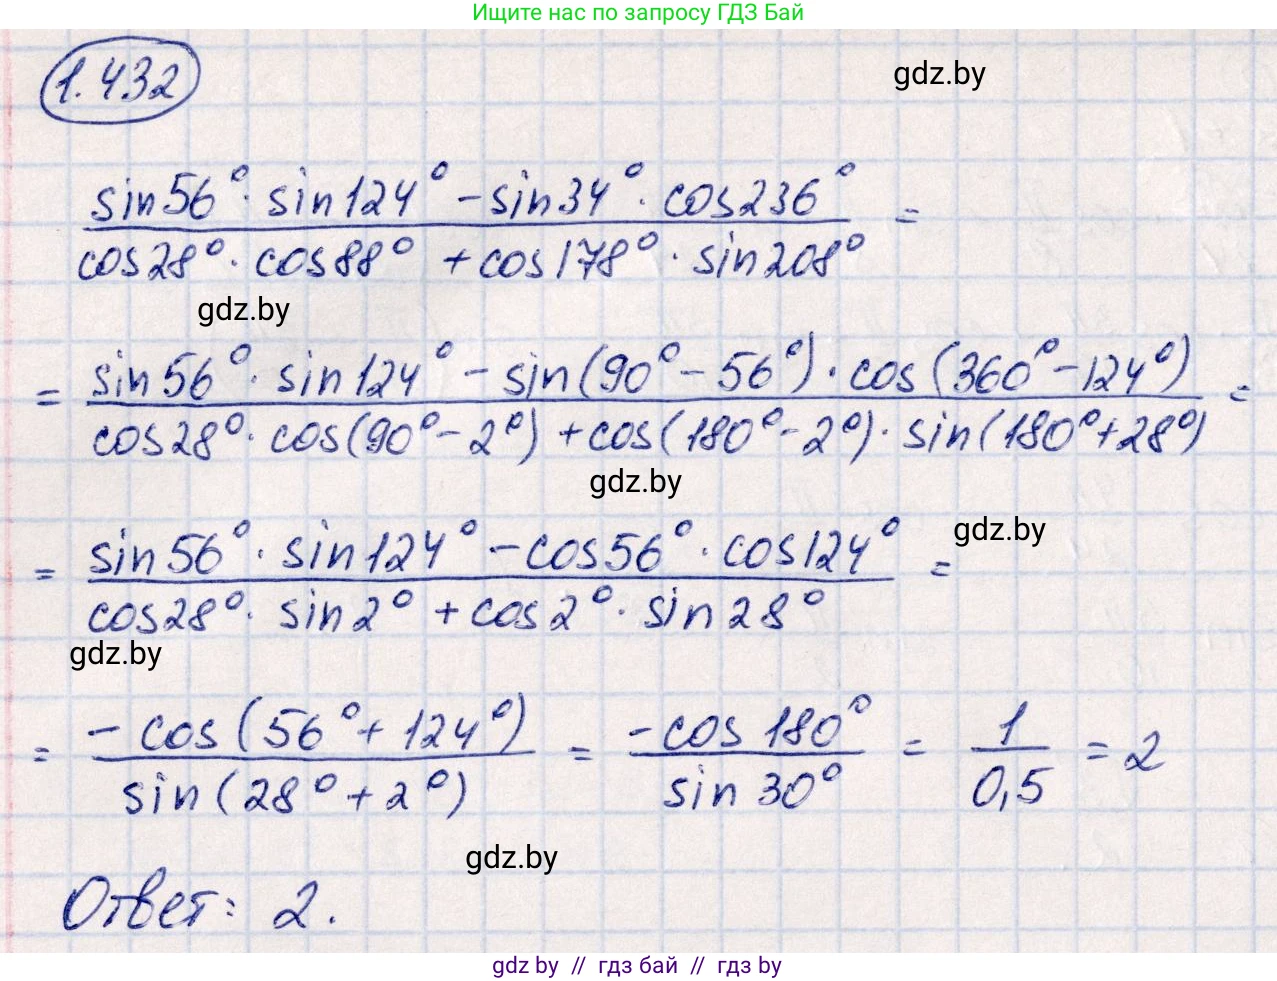 Ищите нас по запросу ГДЗ Бай
1.432
gdz.by
sin56°· sin124° - sin34° · cos236°
=
cos28°· cos88° + cos178° · sin208°
gdz.by
= sin56°· sin124° - sin(90° - 56°) · cos(360° - 124°) =
cos28°· cos(90° - 2°) + cos(180° - 2°) · sin(180° + 28°)
gdz.by
gdz.by
= sin56°· sin124° - cos56° · cos124° =
cos28°· sin2° + cos2° · sin28°
gdz.by
= -cos(56° + 124°) = -cos180° = 1 = 2
sin(28° + 2°) sin30° 0,5
gdz.by
Ответ: 2.
gdz by // гдз бай // гдз by